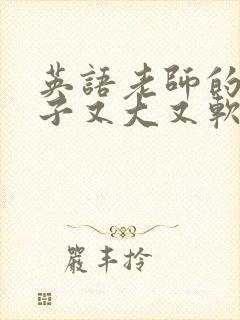 英語老師的
子又大又軟
嚴丰拎